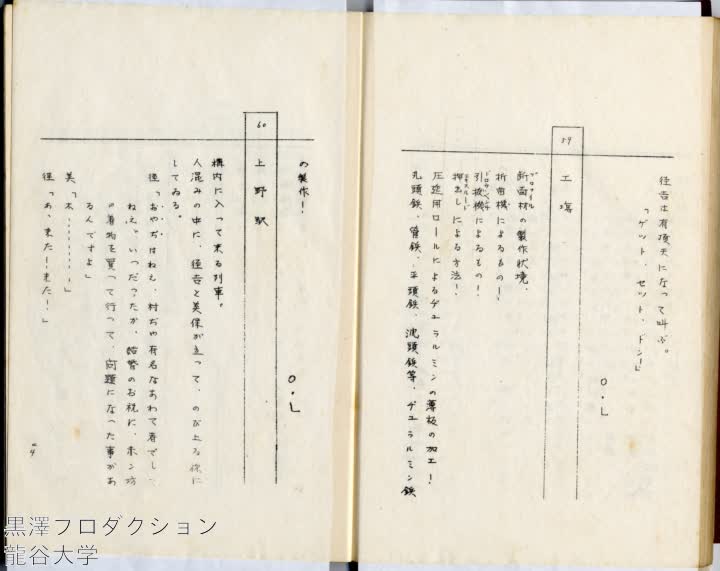 径吉は有頂天になって叫ぶ。
「ゲット、セット、ドン！」
O・L
59
工場
断面材の製作状境、
プロフイル
折曲機によるもの！、
引抜機によるもの！、
ドローベンチ
押出しによる方法！、
エキスルード
圧延用ロールによるヂュラルミンの薄板の加工！
丸頭鋲、管鋲、平頭鋲、沈頭鋲等、ヂュラルミン鋲
の製作！
O・L
60
上野駅
構内に入って来る列車。
人混みの中に、径吉と美保が立って、のび上る様に
してゐる。
径「おやぢはねえ、村ぢや有名なあわて者でし
ねえ。いつだったか、結婚のお祝に、赤ン坊
の着物を買って行って、問題になった事があ
るんですよ」
美「ホ…………」
径「あ、来たー来たー」
黒澤プロダクション
龍谷大学